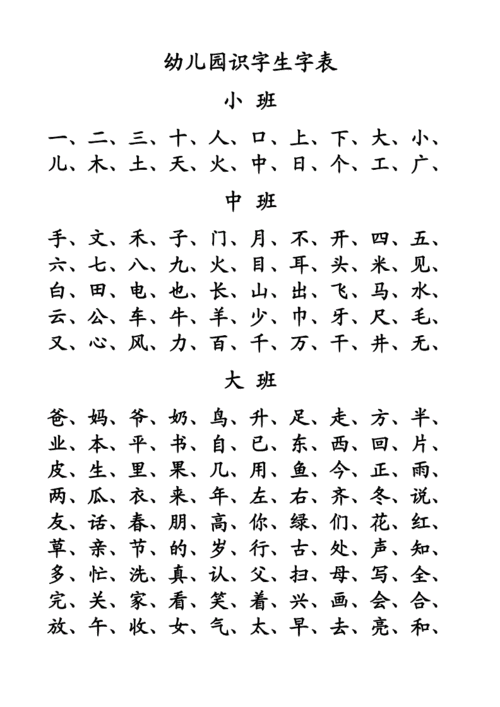 幼儿园识字生字表
小 班
一、二、三、十、人、口、上、下、大、小、
儿、木、土、天、火、中、日、个、工、广、
中 班
手、文、禾、子、门、月、不、开、四、五、
六、七、八、九、火、目、耳、头、米、见、
白、田、电、也、长、山、出、飞、马、水、
云、公、车、牛、羊、少、巾、牙、尺、毛、
又、心、风、力、百、千、万、干、井、无、
大 班
爸、妈、爷、奶、鸟、升、足、走、方、半、
业、本、平、书、自、已、东、西、回、片、
皮、生、里、果、几、用、鱼、今、正、雨、
两、瓜、衣、来、年、左、右、齐、冬、说、
友、话、春、朋、高、你、绿、们、花、红、
草、亲、节、的、岁、行、古、处、声、知、
多、忙、洗、真、认、父、扫、母、写、全、
完、关、家、看、笑、着、兴、画、会、合、
放、午、收、女、气、太、早、去、亮、和、